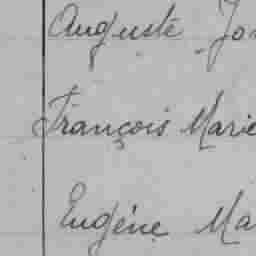 Auguste Jo
François Marie
Eugéne Ma